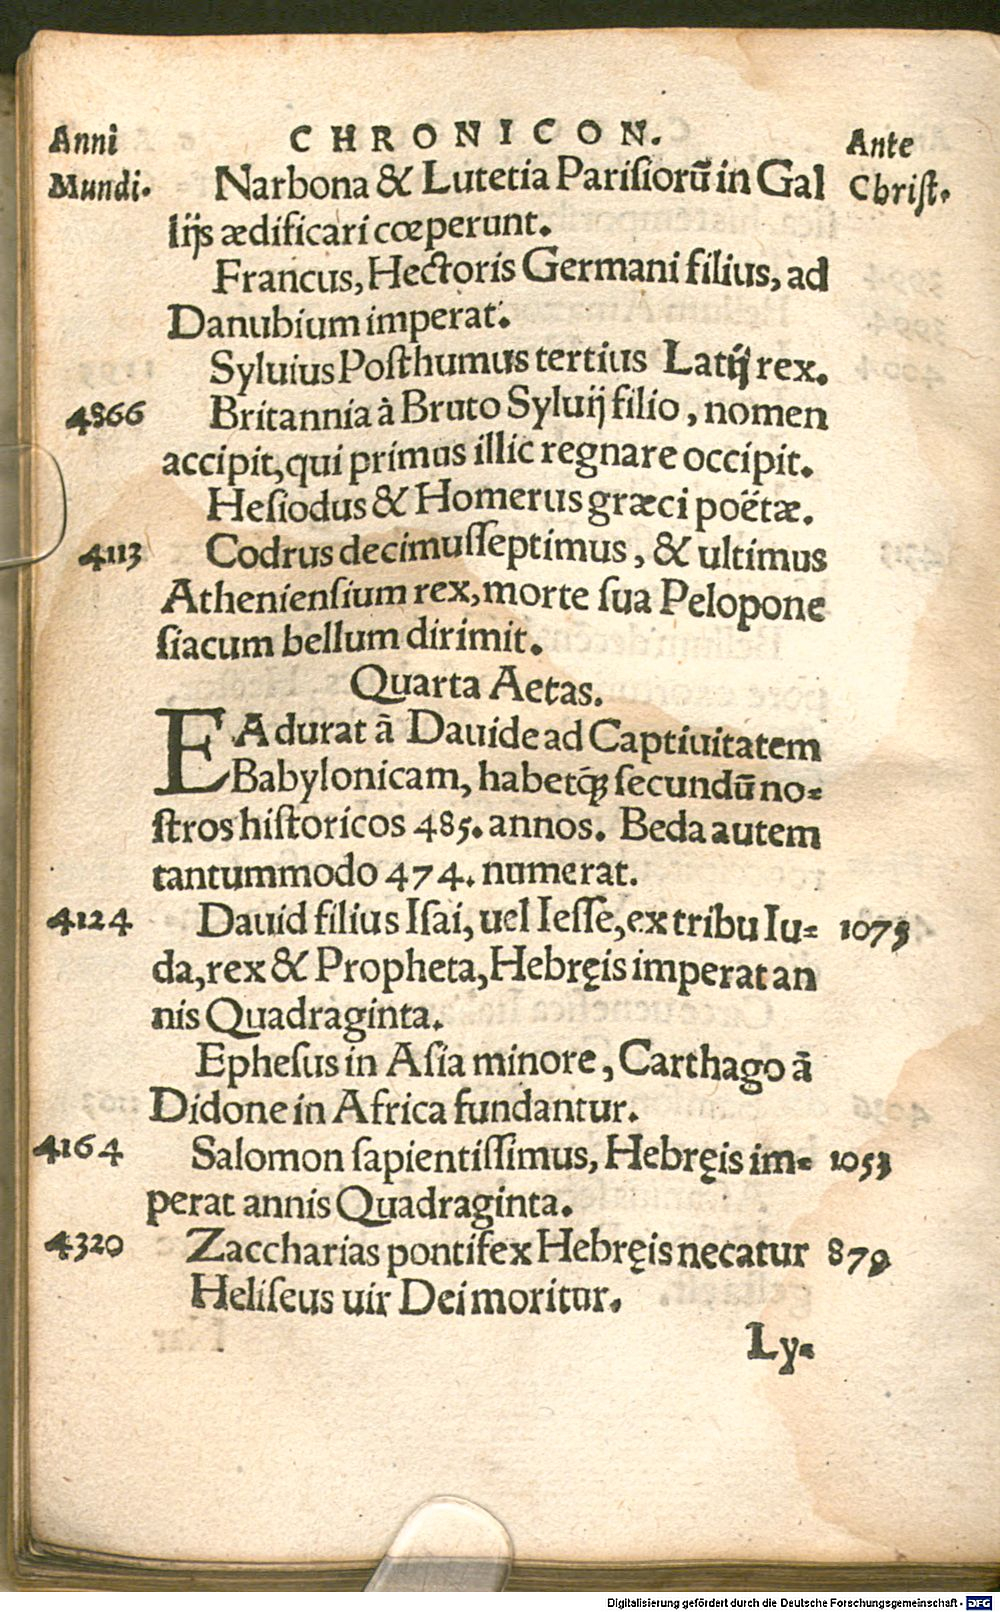 Anni CHRONICON. Ante
Mundi. Narbona & Lutetia Parisiorũ in Gal Christ.
lijs ædificari cœperunt.
Francus, Hectoris Germani filius, ad
Danubium imperat.
Syluius Posthumus tertius Latij rex.
4866 Britannia à Bruto Syluij filio, nomen
accipit, qui primus illic regnare occipit.
Hesiodus & Homerus græci poëtæ.
4113 Codrus decimusseptimus, & ultimus
Atheniensium rex, morte sua Pelopone
siacum bellum dirimit.
Quarta Aetas.
EA durat ã Dauide ad Captiuitatem
Babylonicam, habetq́ꝫ secundũ no-
stros historicos 485. annos. Beda autem
tantummodo 474. numerat.
4124 Dauid filius Isai, uel Iesse, ex tribu Iu- 1073
da, rex & Propheta, Hebręis imperat an
nis Quadraginta.
Ephesus in Asia minore, Carthago ã
Didone in Africa fundantur.
4164 Salomon sapientissimus, Hebręis im- 1053
perat annis Quadraginta.
4320 Zaccharias pontifex Hebręis necatur 879
Heliseus uir Dei moritur.
Ly-
Digitalisierung gefördert durch die Deutsche Forschungsgemeinschaft - DFG